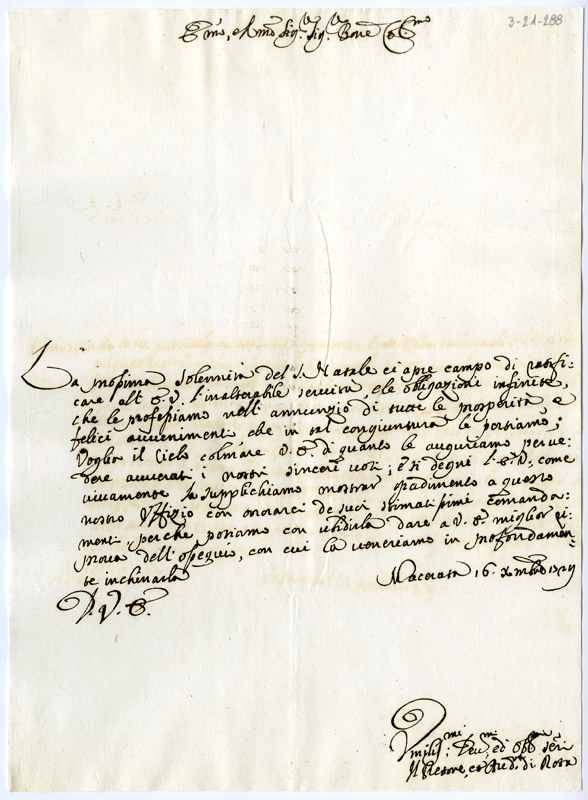 3-21-288
Em̃o, e Rm̃o Sig.r Sig.r Pron̄e Col.mo
La prossima Solennità del S. Natale ci apre campo di ratifi:
care all' E. V. l'inalterabile servitù, e le obligazione infinite,
che le professiamo nell' annunzio di tutte le prosperità, e
felici avvenimenti, che in tal congiuntura le portiamo;
Voglia il Cielo colmare V. E. di quanto le auguriamo per ve:
dere avverati i nostri sinceri voti; e si degni l'E. V., come
vivamente la supplichiamo mostrar gradimento a questo
nostro Uffizio con onorarci de suoi stimatissimi comanda:
menti, perche possiamo con ubidirla dare a V. E. miglior ri:
prova dell' ossequio, con cui la veneriamo in profondamen:
te inchinarla
Macerata 16. Xmbre
D. V. E.
Umiliss:mi Deu:mi ed Obb:mi Ser:ri
Il Rettore, et Aud.ri di Rota